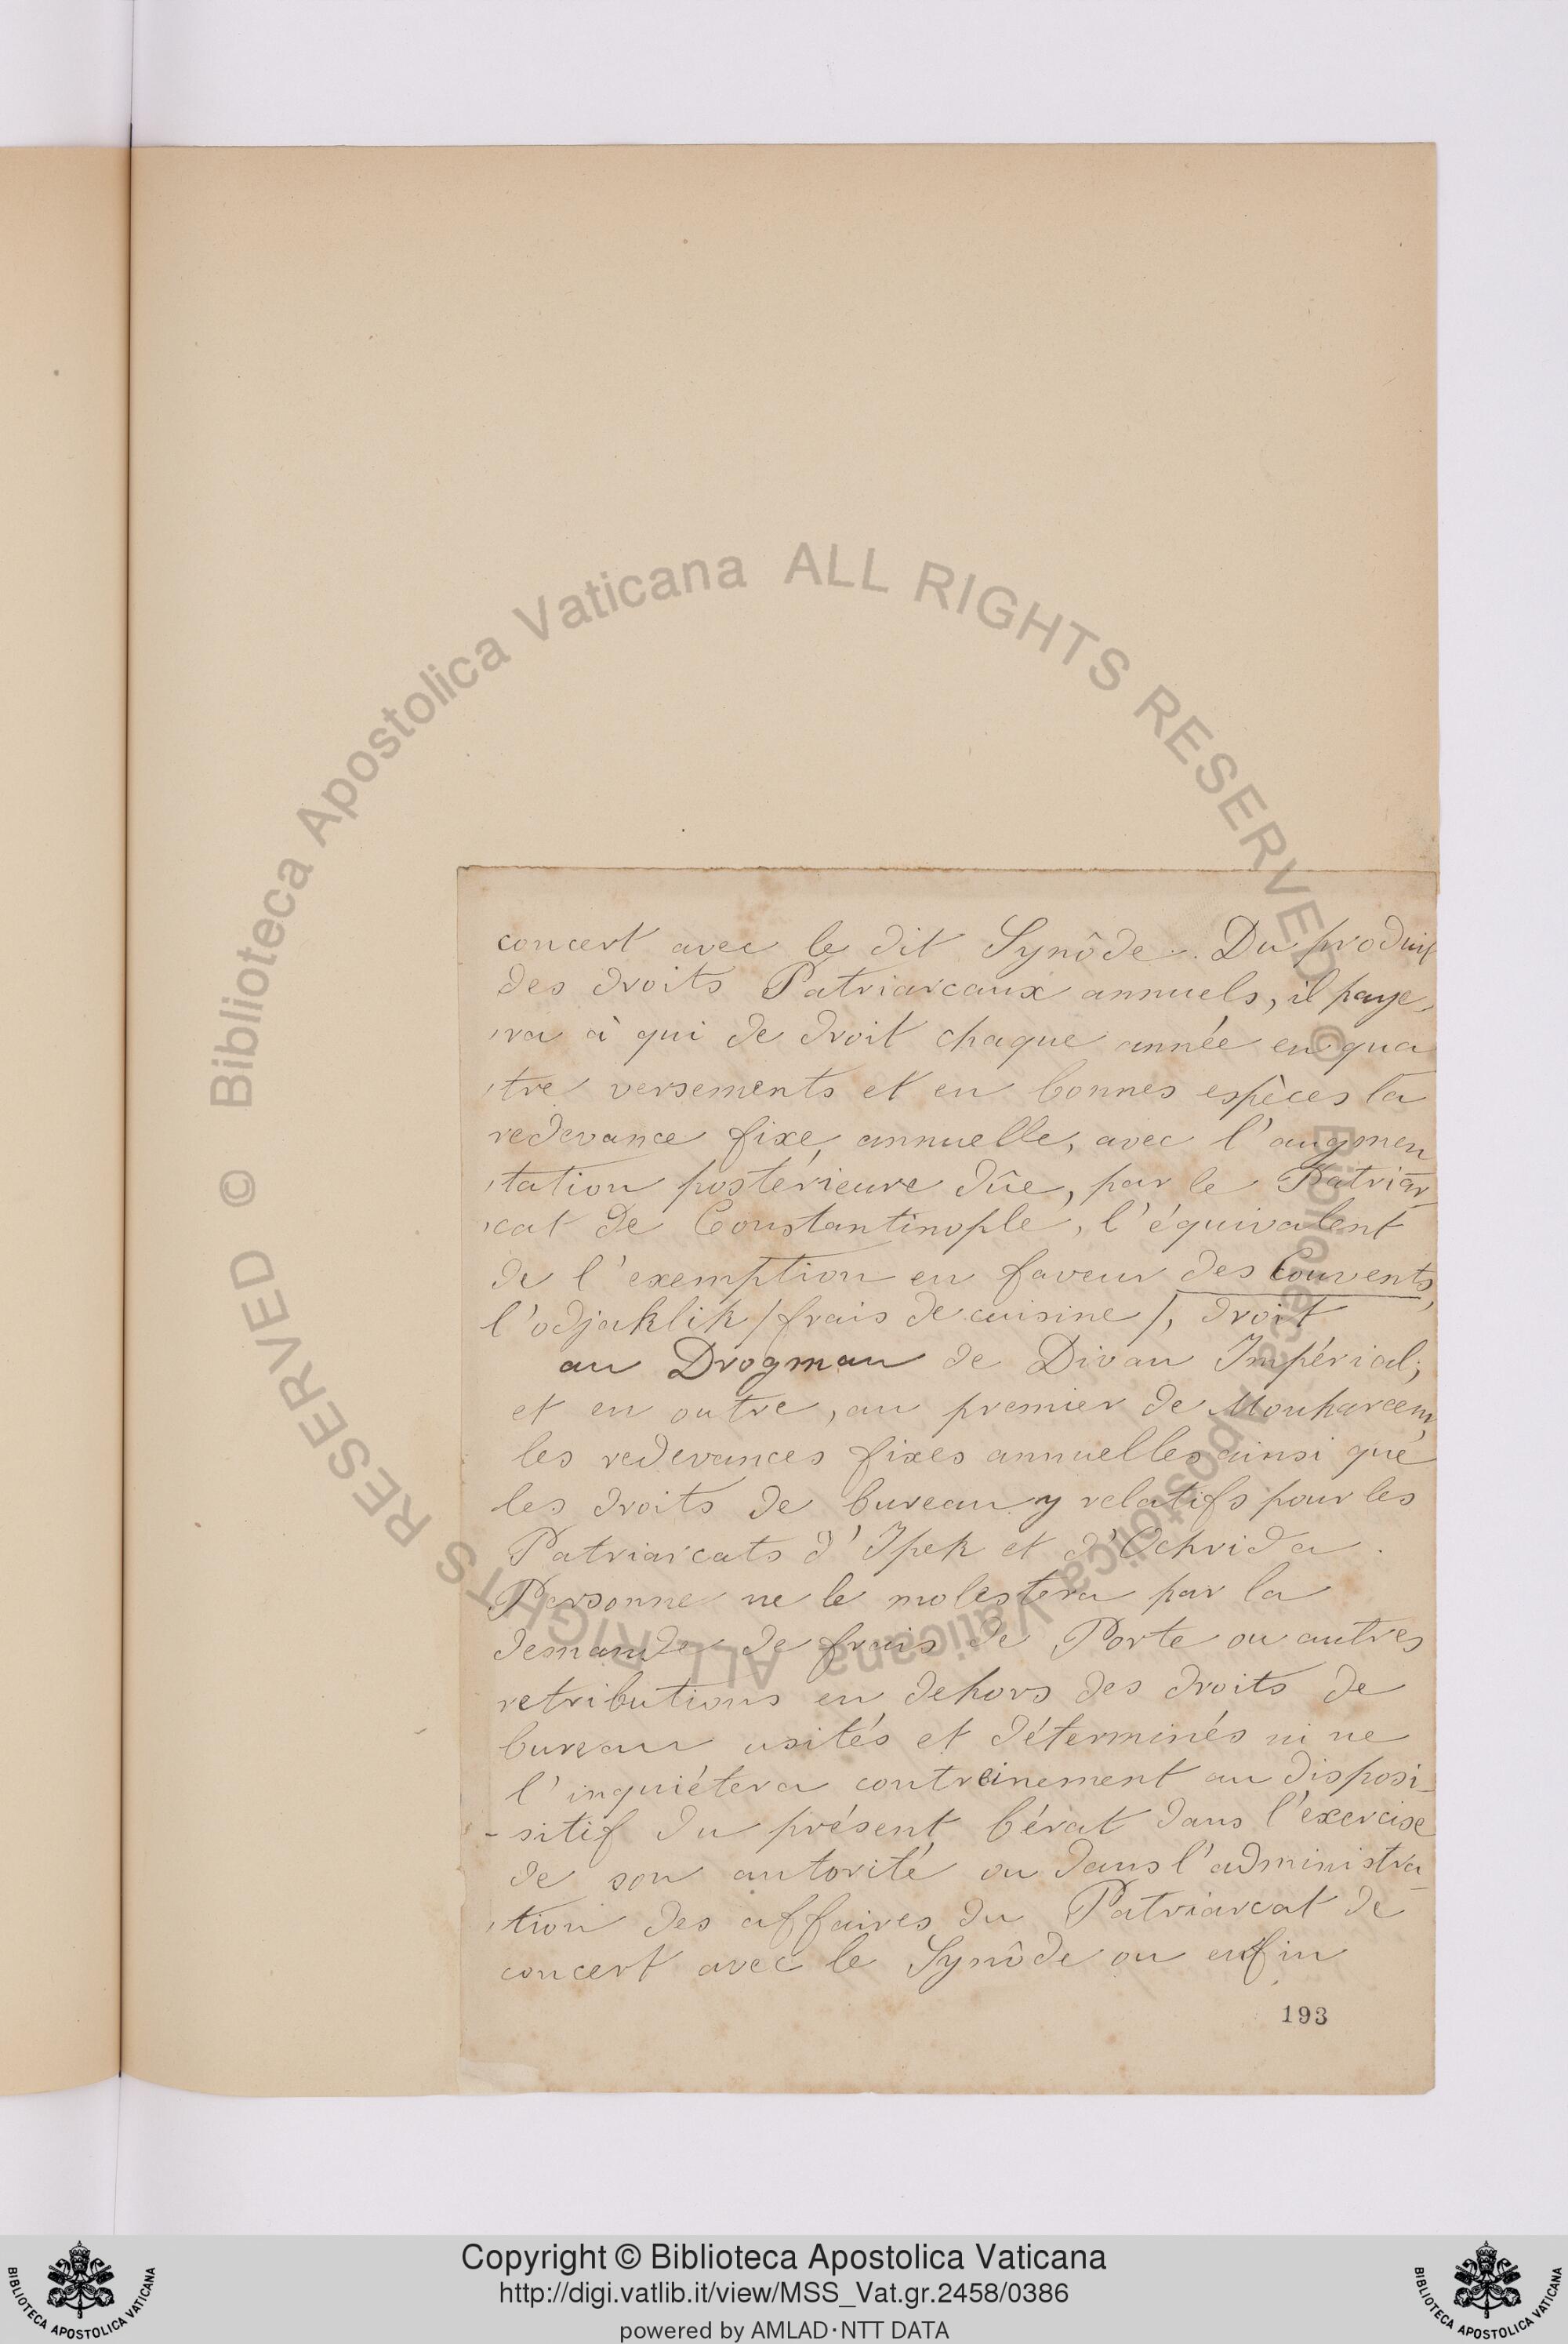 concert avec le dit Synôde. Du produit
des droits Patriarcaux annuels, il paye,
,ra à qui de droit chaque année en qua
,tre versements et en bonnes espèces la
redevance fixe, annuelle, avec l'augmen
,tation postérieure dûe, par le Patriar
,cat de Constantinople, l'équivalent
de l'exemption en faveur des Couvents,
l'odjaklik /frais de cuisine/, droit
au Drogman de Divan Impérial;
et en outre, au premier de Mouharem,
les redevances fixes annuelles ainsi que
les droits de bureau y relatifs pour les
Patriarcats d'Ipek et d'Ochrida.
Personne ne le molestera par la
demande de frais de Porte ou autres
retributions en dehors des droits de
bureau usités et déterminés ni ne
l'inquiétera contrairement au disposi-
-sitif du présent bérat dans l'exercise
de son autorité ou dans l'administra-
,tion des affaires du Patriarcat de
concert avec le Synôde ou enfin
193
© Biblioteca Apostolica Vaticana ALL RIGHTS RESERVED
© Biblioteca Apostolica Vaticana ALL RIGHTS RESERVED
BIBLIOTECA APOSTOLICA VATICANA
Copyright © Biblioteca Apostolica Vaticana
http://digi.vatlib.it/view/MSS_Vat.gr.2458/0386
powered by AMLAD·NTT DATA
BIBLIOTECA APOSTOLICA VATICANA